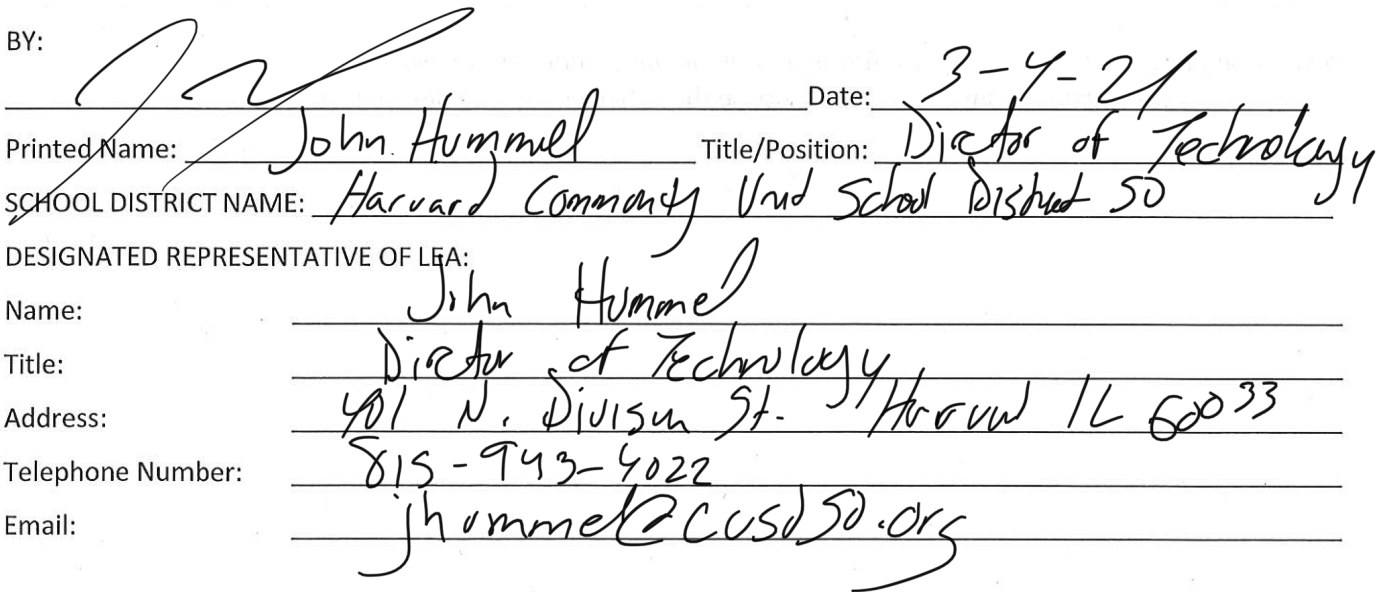 BY: Date: 3-4-21
Printed Name: John Hummel Title/Position: Director of Technology
SCHOOL DISTRICT NAME: Harvard Community Unit School District 50
DESIGNATED REPRESENTATIVE OF LEA:
Name: John Hummel
Title: Director of Technology
Address: 401 N. Division St. Harvard IL 60033
Telephone Number: 815-943-4022
Email: jhummel@cusd50.org